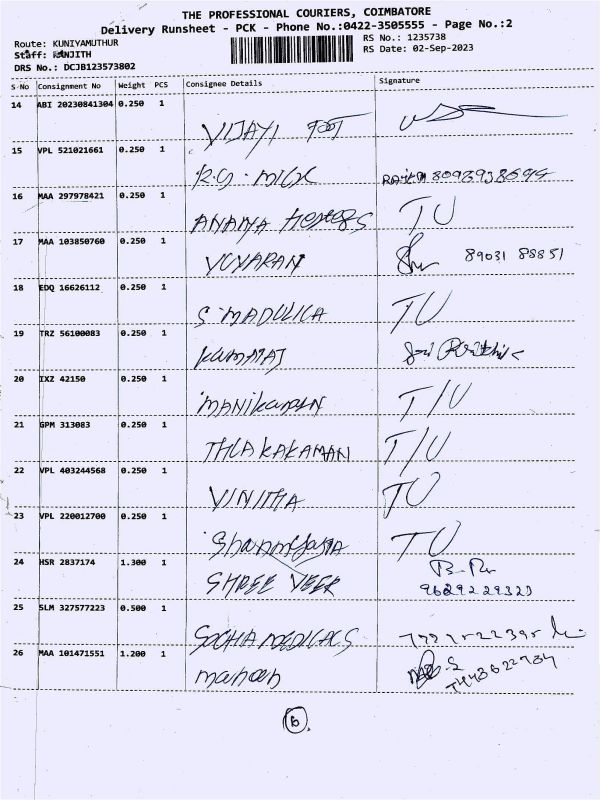 THE PROFESSIONAL COURIERS, COIMBATORE
Delivery Runsheet - PCK - Phone No.:0422-3505555 - Page No.:2
Route: KUNIYAMUTHUR
RS No.: 1235738
Staff: RANJITH
RS Date: 02-Sep-2023
DRS No.: DCJB123573802
S No Consignment No Weight PCS Consignee Details Signature
14 ABI 20230841304 0.250 1
VIJAYI
15 VPL 521021661 0.250 1
R.G. MILK
16 MAA 297978421 0.250 1
ANANYA Hostels TU
17 MAA 103850760 0.250 1
YUVARAN 89031 88851
18 EDQ 16626112 0.250 1
S. MADULICA TU
19 TRZ 56100083 0.250 1
KUMARAJ
20 IXZ 42150 0.250 1
MANIKANDAN T/U
21 GPM 313083 0.250 1
THLAKAKAMAN T/U
22 VPL 403244568 0.250 1
VINITHA TU
23 VPL 220012700 0.250 1
TU
24 HSR 2837174 1.300 1
SHREE VEER 9629229323
25 SLM 327577223 0.500 1
MEDICALS
26 MAA 101471551 1.200 1
6